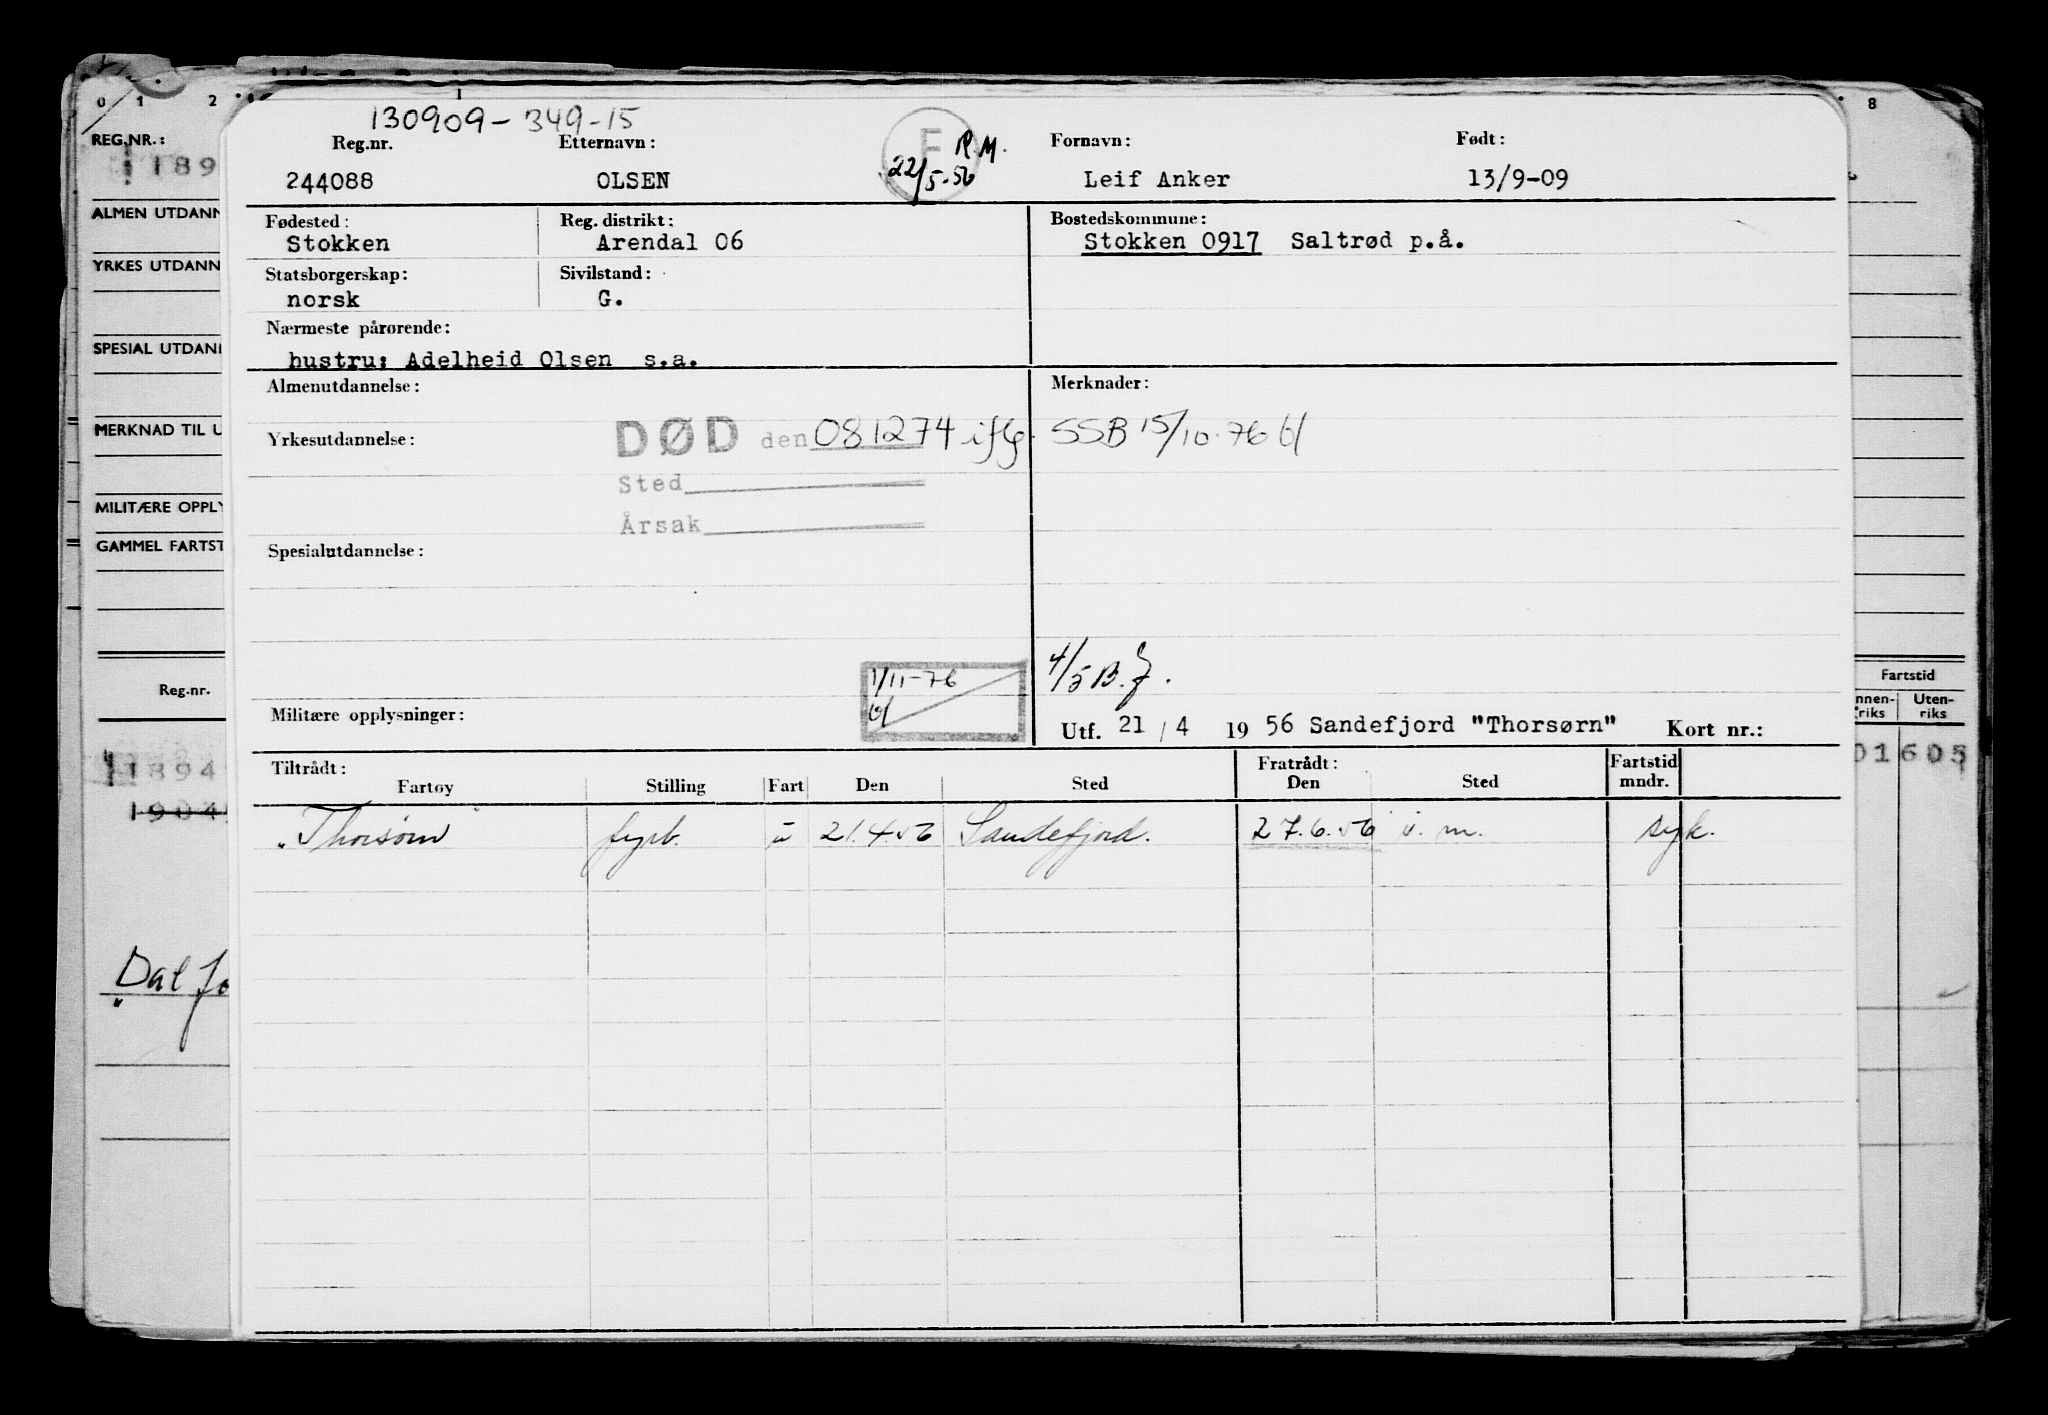 0 1 2 8
130909-349-15
REG.NR.: Reg.nr. Etternavn: F R.M. Fornavn: Født:
1189 244088 OLSEN 22/5-56 Leif Anker 13/9-09
ALMEN UTDANN Fødested: Reg. distrikt: Bostedskommune:
Stokken Arendal 06 Stokken 0917 Saltrød p.å.
YRKES UTDANN Statsborgerskap: Sivilstand:
norsk G.
Nærmeste pårørende:
SPESIAL UTDAN hustru: Adelheid Olsen s.a.
Almenutdannelse: Merknader:
MERKNAD TIL U Yrkesutdannelse: DØD den 081274 iflg. SSB 15/10-76
Sted
MILITÆRE OPPLY Årsak
GAMMEL FARTST Spesialutdannelse:
Reg.nr. 1/11-76 4/5 B.J. Fartstid
Militære opplysninger: Utf. 21/4 1956 Sandefjord "Thorsørn" Kort nr.: nnen-riks Uten-riks
11894 01605
Tiltrådt: Fratrådt: Fartstid
Fartøy Stilling Fart Den Sted Den Sted mndr.
1904 "Thorsørn" fyrb. u 21.4.56 Sandefjord. 27.6.56 u.m. syk.
Dat